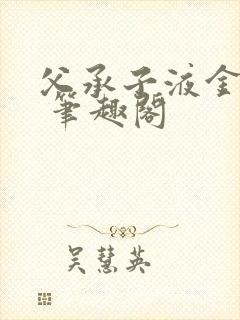 父承子液金
笔趣阁
吴慧英